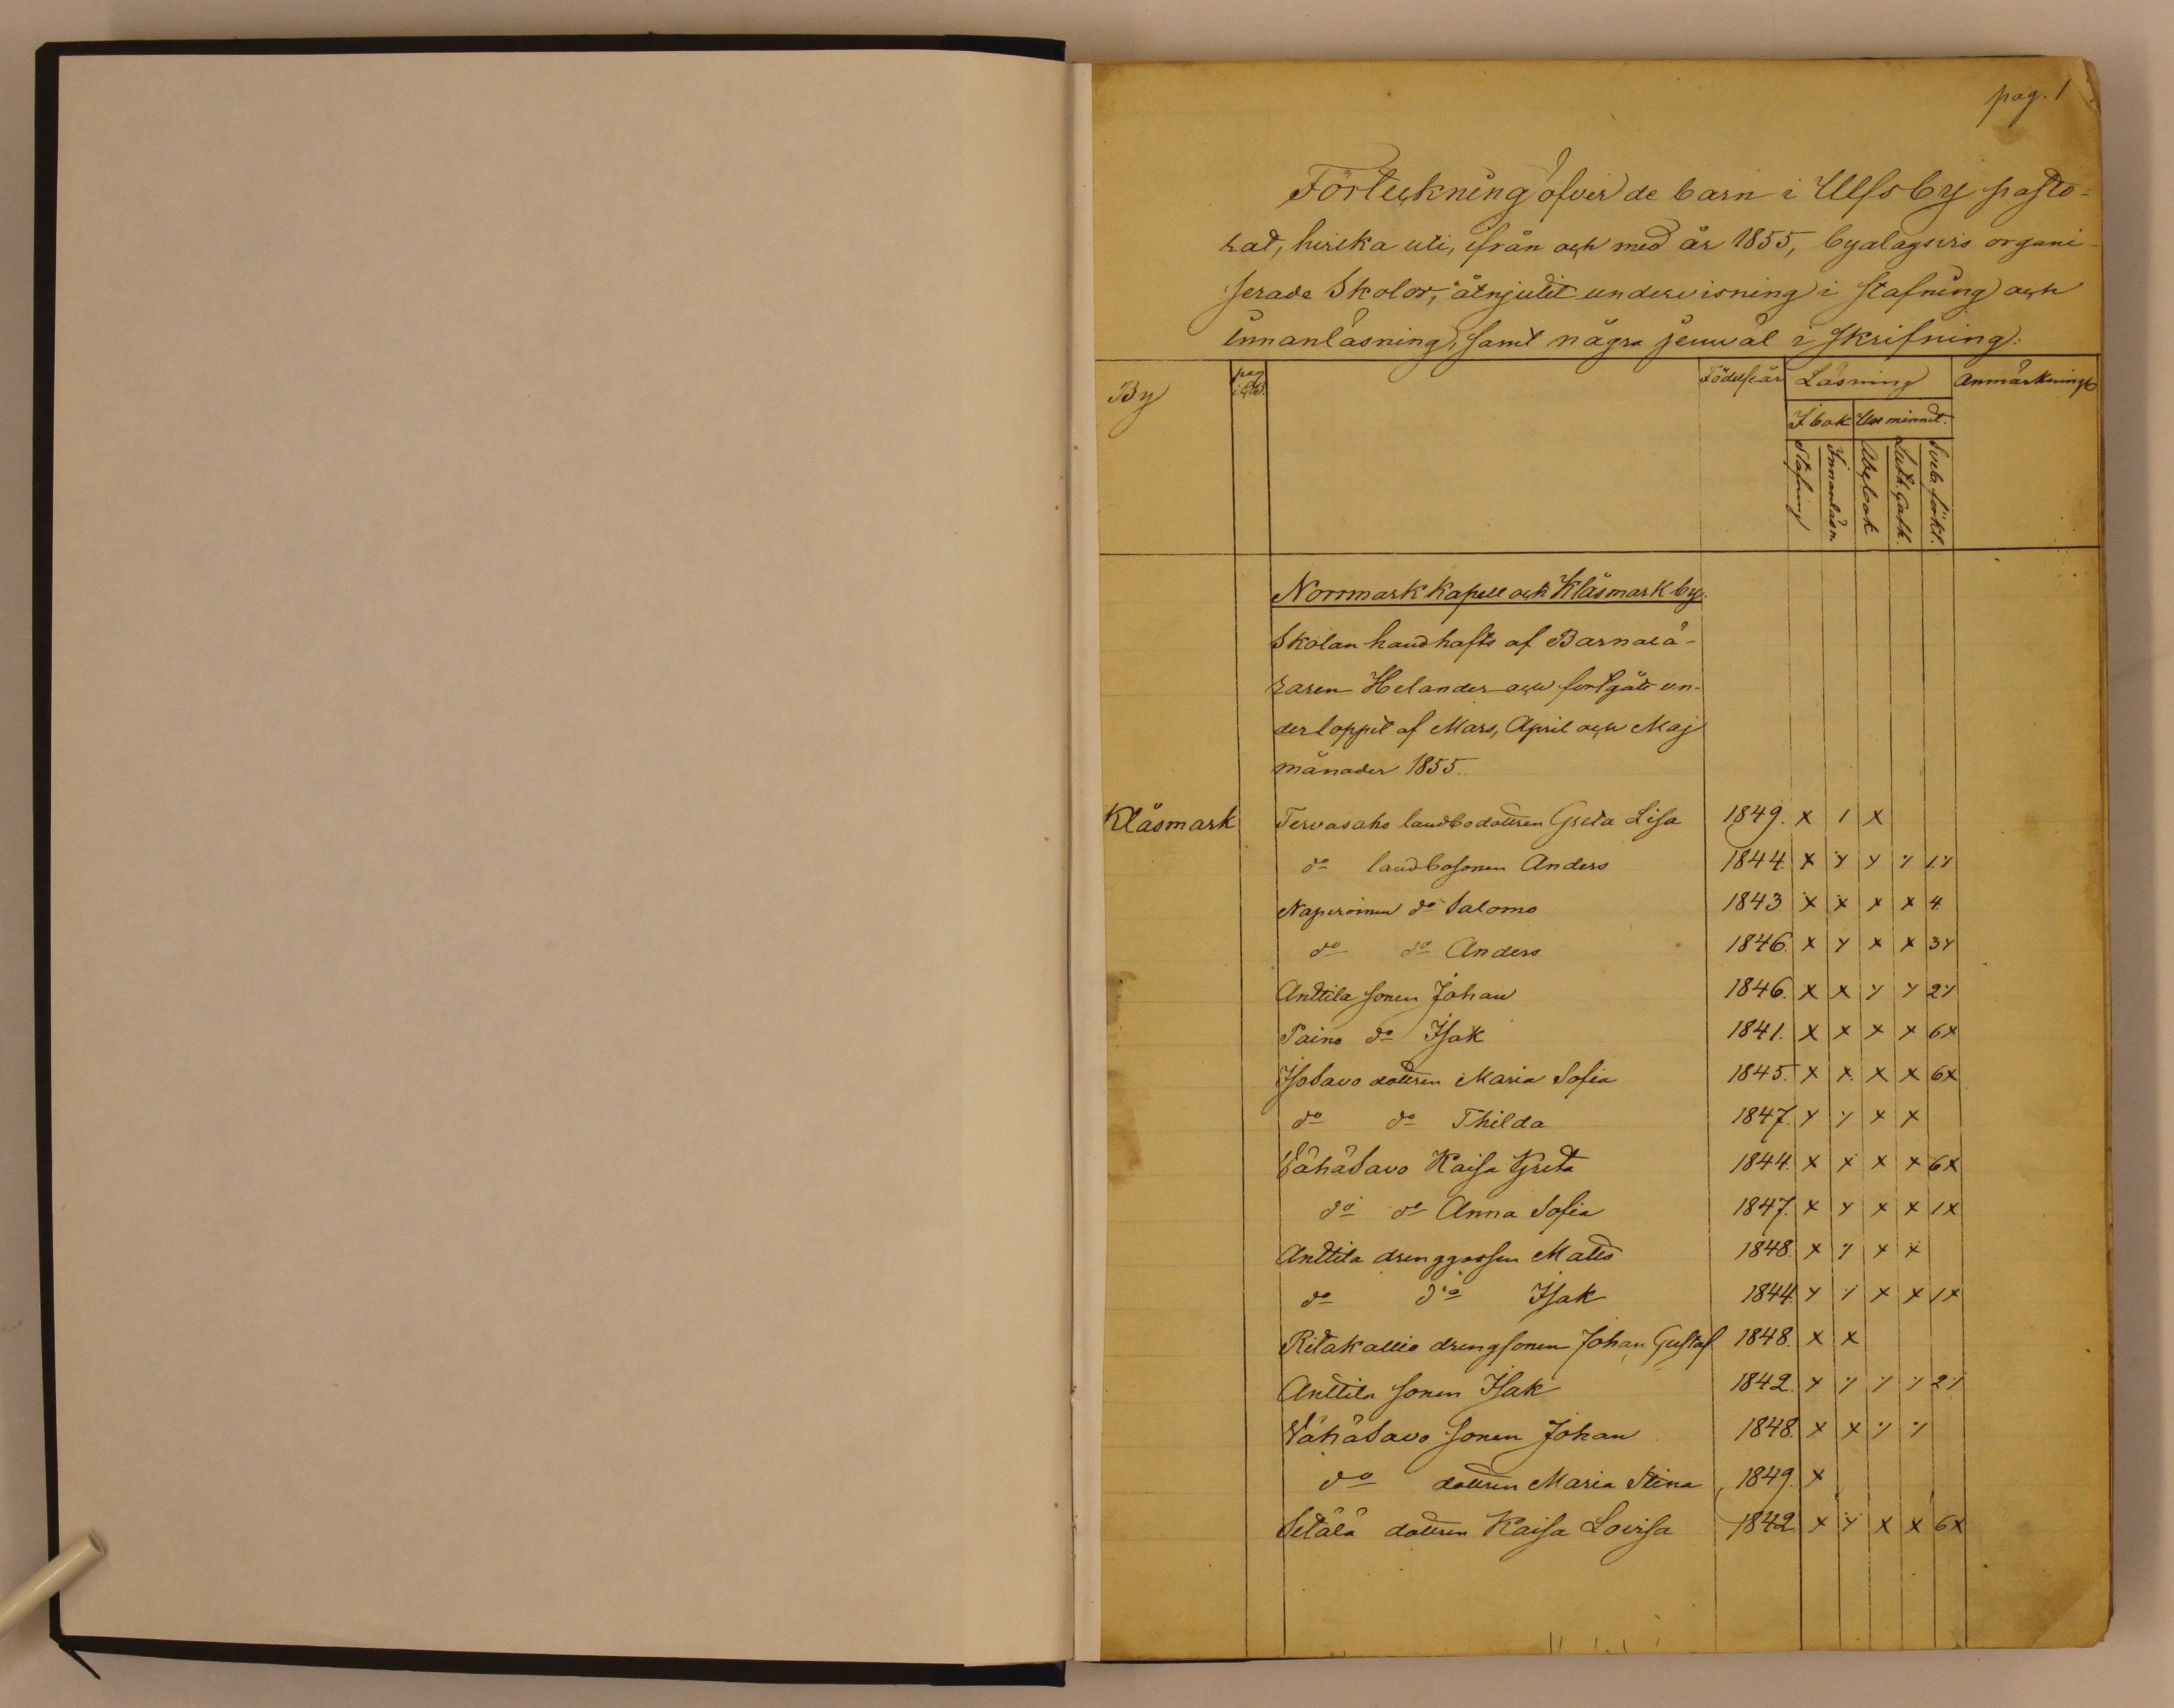 pag. 1
Förteckning öfver de barn i Ulfsby pasto-
rat, hvilka uti, ifrån och med år 1855, byalagsvis organi-
serade Skolor, åtnjutit undervisning i stafning och
innanläsning, samt några jemväl i skrifning:
By
pag
Födelseår
Läsning
Anmärkningar
I bok
Ur minnet.
Stafning
Innanläsn.
Abcbok
Luth. Cath.
Sveb. förkl.
Norrmark Kapell och Klåsmark by.
Skolan handhafts af Barnalä-
raren Helander och fortgått un-
der loppet af Mars, April och Maj
månader 1855.
Klåsmark Tervasaho landbodottren Greta Lisa 1849. x 1 x
do landbosonen Anders 1844. x x x x 1.x
Naperoinen do Salomo 1843 x x x x 4.
do do Anders 1846. x x x x 3x
Anttila sonen Johan 1846. x x x x 2x
Paino do Isak 1841. x x x x 6x
IsoSavo dottren Maria Sofia 1845. x x x x 6x
do do Thilda 1847. x x x x
WähäSavo Kaisa Greta 1844. x x x x 6x
do do Anna Sofia 1847. x x x x 1x
Anttila drenggossen Matts 1848. x x x x
do do Isak 1844. x x x x 1x
Ritakallio drengsonen Johan Gustaf 1848. x x
Anttila sonen Isak 1842. x x x x 2x
WähäSavo sonen Johan 1848. x x x x
do dottren Maria Stina 1849. x
Setälä dottren Kaisa Lovisa 1842 x x x x 6x